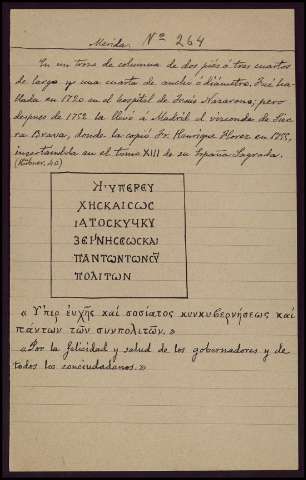 Merida. Nº 264
En un trozo de columna de dos piés ó tres cuartos
de largo y una cuarta de ancho ó diámetro. Fué ha-
llada en 1720 en el hospital de Jesús Nazareno; pero
despues de 1752 la llevó á Madrid el vizconde de Sier-
ra Brava, donde la copió Fr. Henrique Florez en 1755,
insertandola en el tomo XIII de su España Sagrada.
(Hübner, 40)
Η·ΥΠΕΡΕΥ
ΧΗCΚΑΙCΩC
ΙΑΤΟCΚΥΥΚΥ
ΒΕΙΡΝΗCΕΩCΚΑΙ
ΠΑΝΤΩΝΤΩΝCΥ
ΠΟΛΙΤΩΝ
« Υπερ ευχῆς καί σοσίατος κυνκυβερνήσεως καί
πάντων τῶν συνπολιτῶν. »
«Por la felicidad y salud de los gobernadores y de
todos los conciudadanos.»